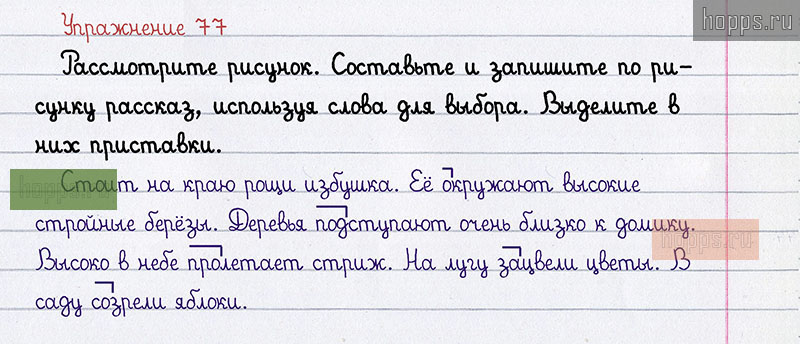 hopps.ru
Упражнение 77
Рассмотрите рисунок. Составьте и запишите по ри-
сунку рассказ, используя слова для выбора. Выделите в
них приставки.
Стоит на краю рощи избушка. Её окружают высокие
стройные берёзы. Деревья подступают очень близко к домику.
hopps.ru
Высоко в небе пролетает стриж. На лугу зацвели цветы. В
саду созрели яблоки.